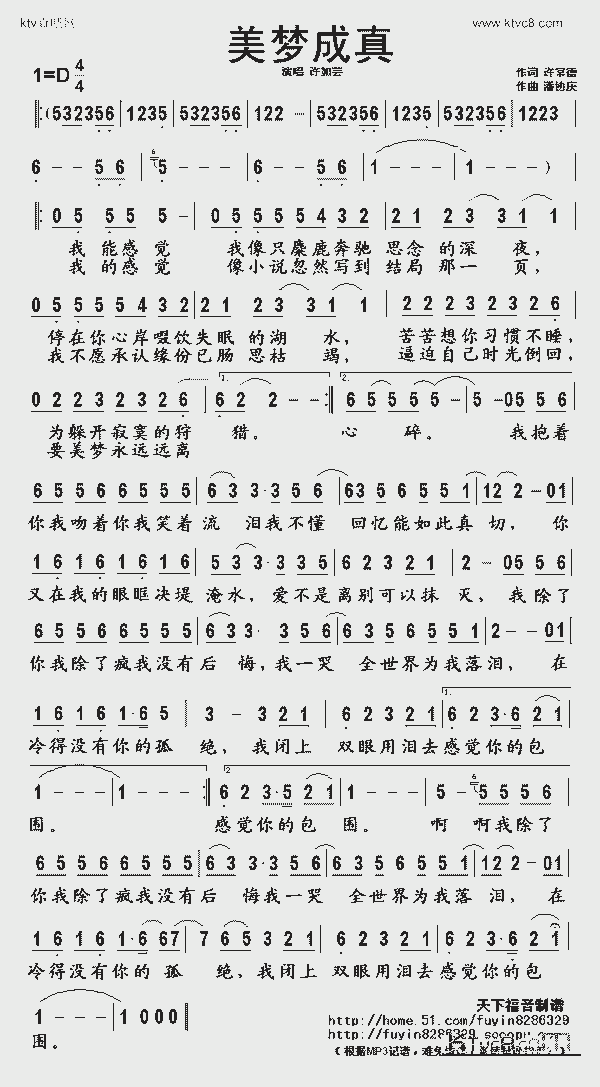 www.ktvc8.com
美梦成真
1=D 4/4
演唱 许如芸
作词 许常德
作曲 潘协庆
(532356 1235 532356 122 -- 532356 1235 532356 1223
6 - - 5 6 6 5 - - - 6 - - 5 6 1 - - - 1 - - )
0 5 5 5 5 - 0 5 5 5 5 4 3 2 2 1 2 3 3 1 1
我 能感 觉 我像只麋鹿奔驰 思念 的深 夜，
我 的感 觉 像小说忽然写到 结局 那一 页，
0 5 5 5 5 4 3 2 2 1 2 3 3 1 1 2 2 2 3 2 3 2 6
停在你心岸啜饮失眠 的湖 水， 苦苦想你习惯不睡，
我不愿承认缘份已肠 思枯 竭， 逼迫自己时光倒回，
0 2 2 3 2 3 2 6 1. 6 2 2 - - 2. 6 5 5 5 5 - 5 - 05 5 6
为躲开寂寞的狩 猎。 心 碎。 我抱着
要美梦永远远离
6 5 6 5 6 6 5 5 6 3 3·3 5 6 63 5 6 5 5 1 12 2 - 01
你我吻着你我笑着流 泪我不懂 回忆能如此真 切， 你
1 6 1 6 1 6 1 6 5 3 3·3 3 5 6 2 3 2 1 2 - 05 5 6
又在我的眼眶决堤 淹水，爱不是离别可以抹 灭，我除了
6 5 6 5 6 6 5 5 6 3 3· 3 5 6 6 3 5 6 5 5 1 2 - - 01
你我除了疯我没有后 悔，我一哭 全世界为我落泪，在
1 6 1 6 1·6 5 3 - 3 2 1 6 2 3 2 1 1. 6 2 3·6 2 1
冷得没有你的孤 绝，我闭上 双眼用泪去感觉你的包
1 - - - 1 - - - 2. 6 2 3·5 2 1 1 - - - 5 - 6 5 5 5 6
围。 感觉你的包 围。 啊 啊我除了
6 5 6 5 6 6 5 5 6 3 3·3 5 6 6 3 5 6 5 5 1 12 2 - 01
你我除了疯我没有后 悔我一哭 全世界为我落 泪，在
1 6 1 6 1·6 67 7 6 5 3 2 1 6 2 3 2 1 6 2 3·6 2 1
冷得没有你的 孤 绝，我闭上 双眼用泪去感觉你的包
1 - - - 1 0 0 0
围。
天下福音制谱
http://home.51.com/fuyin8286329